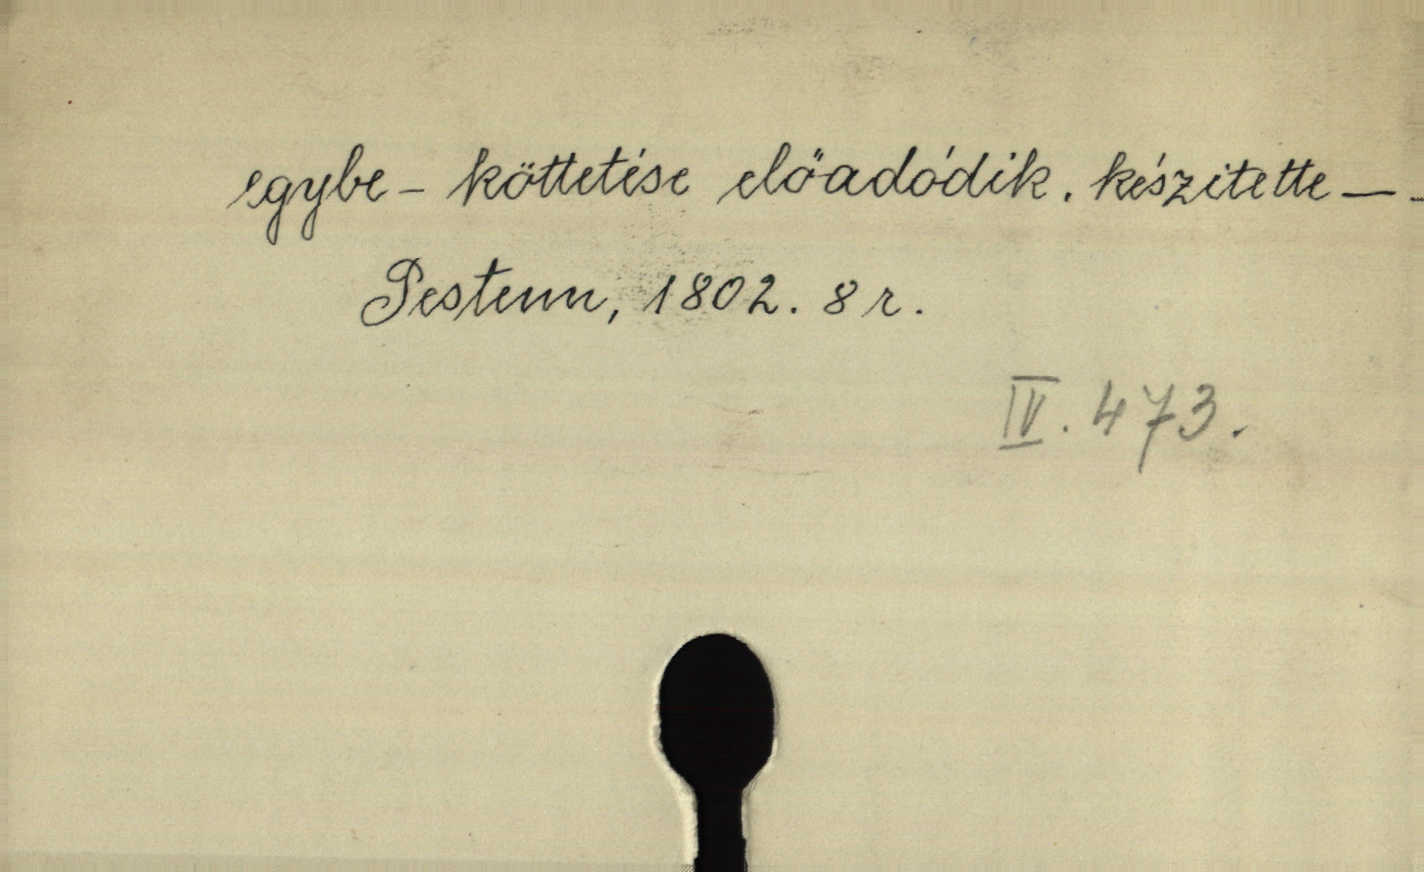 egybe - köttetése előadódik. készitette — -
Pestenn, 1802. 8 r.
IV. 473.